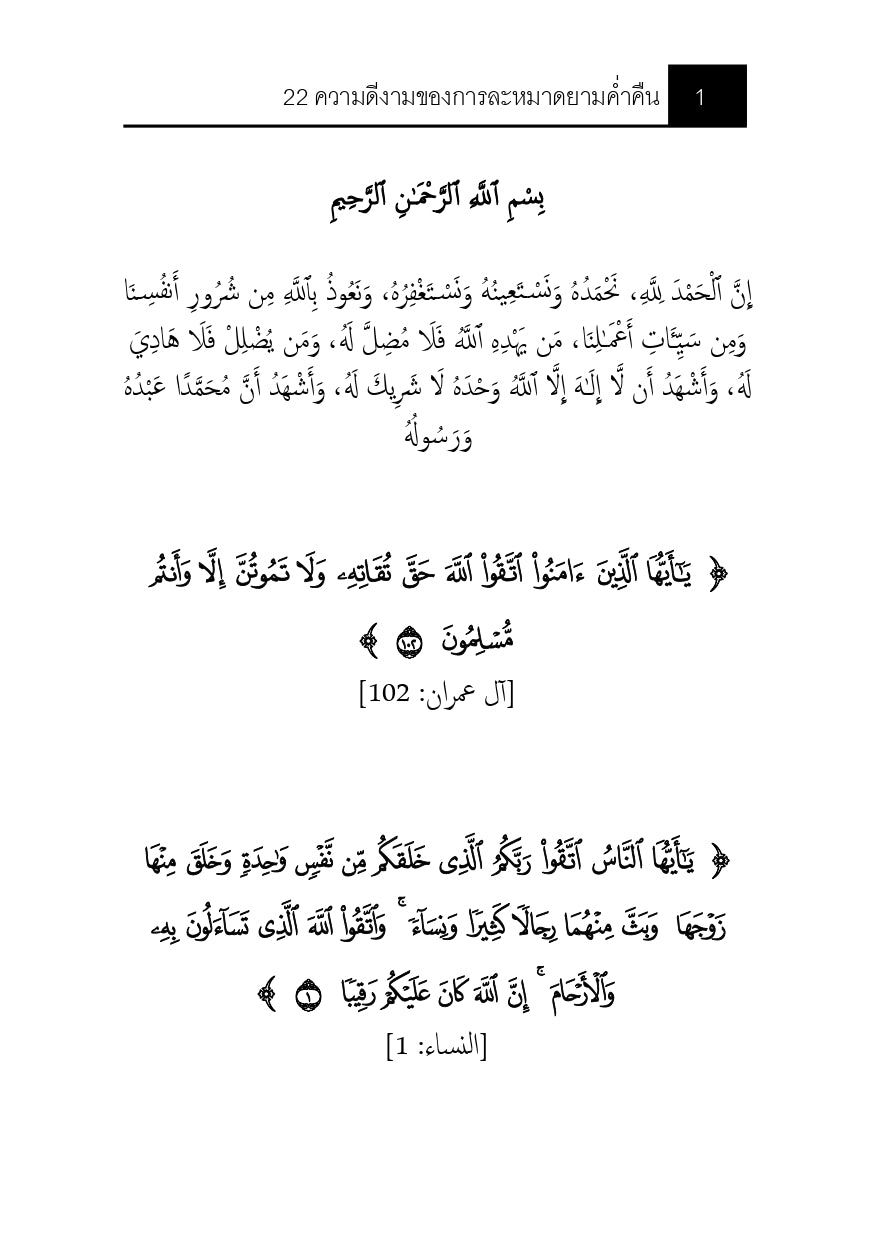 22 ความดีงามของการละหมาดยามค่ำคืน 1
بِسْمِ ٱللَّهِ ٱلرَّحْمَـٰنِ ٱلرَّحِيمِ
إِنَّ ٱلْحَمْدَ لِلَّهِ، نَحْمَدُهُ وَنَسْتَعِينُهُ وَنَسْتَغْفِرُهُ، وَنَعُوذُ بِٱللَّهِ مِن شُرُورِ أَنفُسِنَا
وَمِن سَيِّئَاتِ أَعْمَـٰلِنَا، مَن يَهْدِهِ ٱللَّهُ فَلَا مُضِلَّ لَهُ، وَمَن يُضْلِلْ فَلَا هَادِيَ
لَهُ، وَأَشْهَدُ أَن لَّا إِلَـٰهَ إِلَّا ٱللَّهُ وَحْدَهُ لَا شَرِيكَ لَهُ، وَأَشْهَدُ أَنَّ مُحَمَّدًا عَبْدُهُ
وَرَسُولُهُ
﴿ يَـٰٓأَيُّهَا ٱلَّذِينَ ءَامَنُوا۟ ٱتَّقُوا۟ ٱللَّهَ حَقَّ تُقَاتِهِۦ وَلَا تَمُوتُنَّ إِلَّا وَأَنتُم
مُّسْلِمُونَ ١٠٢ ﴾
[آل عمران: 102]
﴿ يَـٰٓأَيُّهَا ٱلنَّاسُ ٱتَّقُوا۟ رَبَّكُمُ ٱلَّذِى خَلَقَكُم مِّن نَّفْسٍ وَٰحِدَةٍ وَخَلَقَ مِنْهَا
زَوْجَهَا وَبَثَّ مِنْهُمَا رِجَالًا كَثِيرًا وَنِسَآءً ۚ وَٱتَّقُوا۟ ٱللَّهَ ٱلَّذِى تَسَآءَلُونَ بِهِۦ
وَٱلْأَرْحَامَ ۚ إِنَّ ٱللَّهَ كَانَ عَلَيْكُمْ رَقِيبًا ١ ﴾
[النساء: 1]